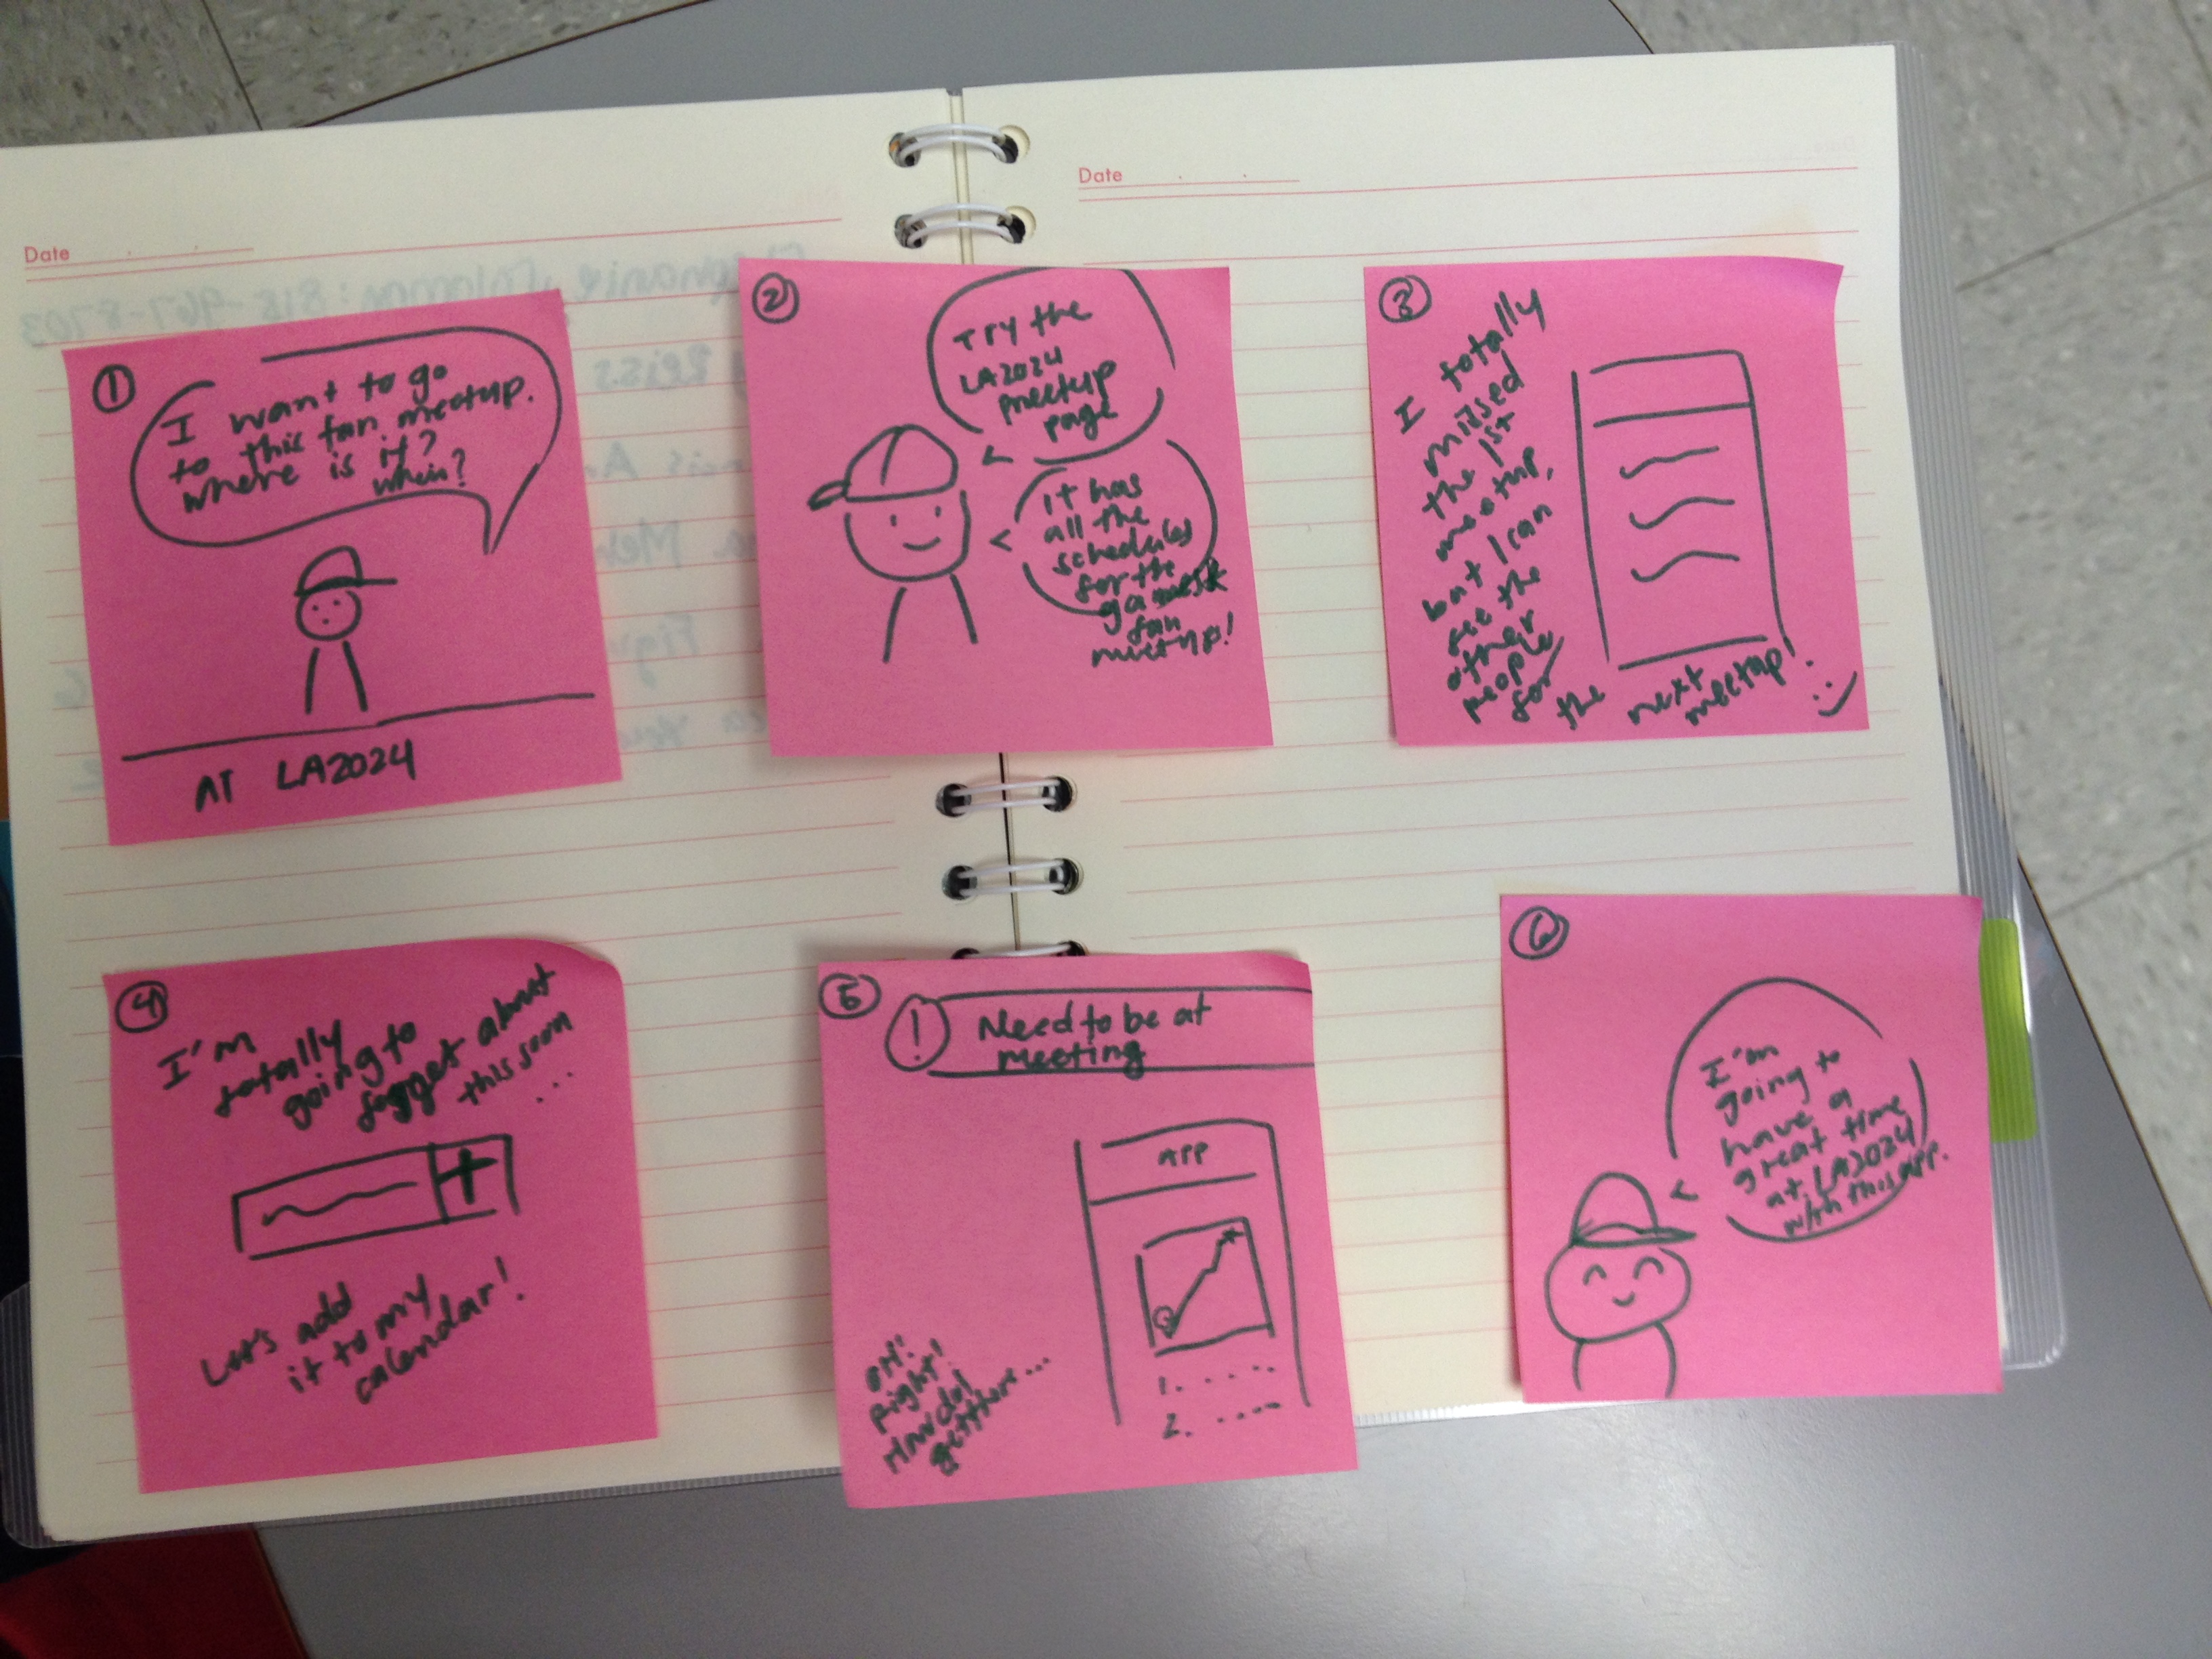 Date
Date
①
I want to go
to this fan meetup.
where is it?
when?
AT LA2024
②
Try the
LA2024
meetup
page
It has
all the
schedules
for the
fan
meetup!
③
I totally
missed
the 1st
meetup.
but I can
see the
other
people
for the next meetup! :)
④
I'm
totally
going to
forget about
this soon
...
+
Let's add
it to my
calendar!
⑤
! Need to be at
meeting
OH!
Right!
getting...
APP
1. ....
2. ....
⑥
I'm
going to
have a
great time
at LA2024
with this app.